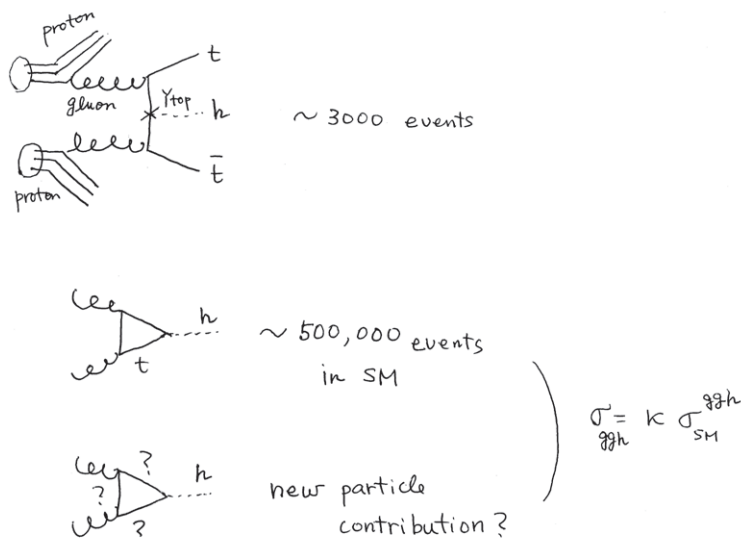 proton
gluon
Ytop
t
h
t̄
proton
~ 3000 events
h
t
~ 500,000 events
in SM
?
?
?
h
new particle
contribution ?
σ_ggh = κ σ_SM^ggh